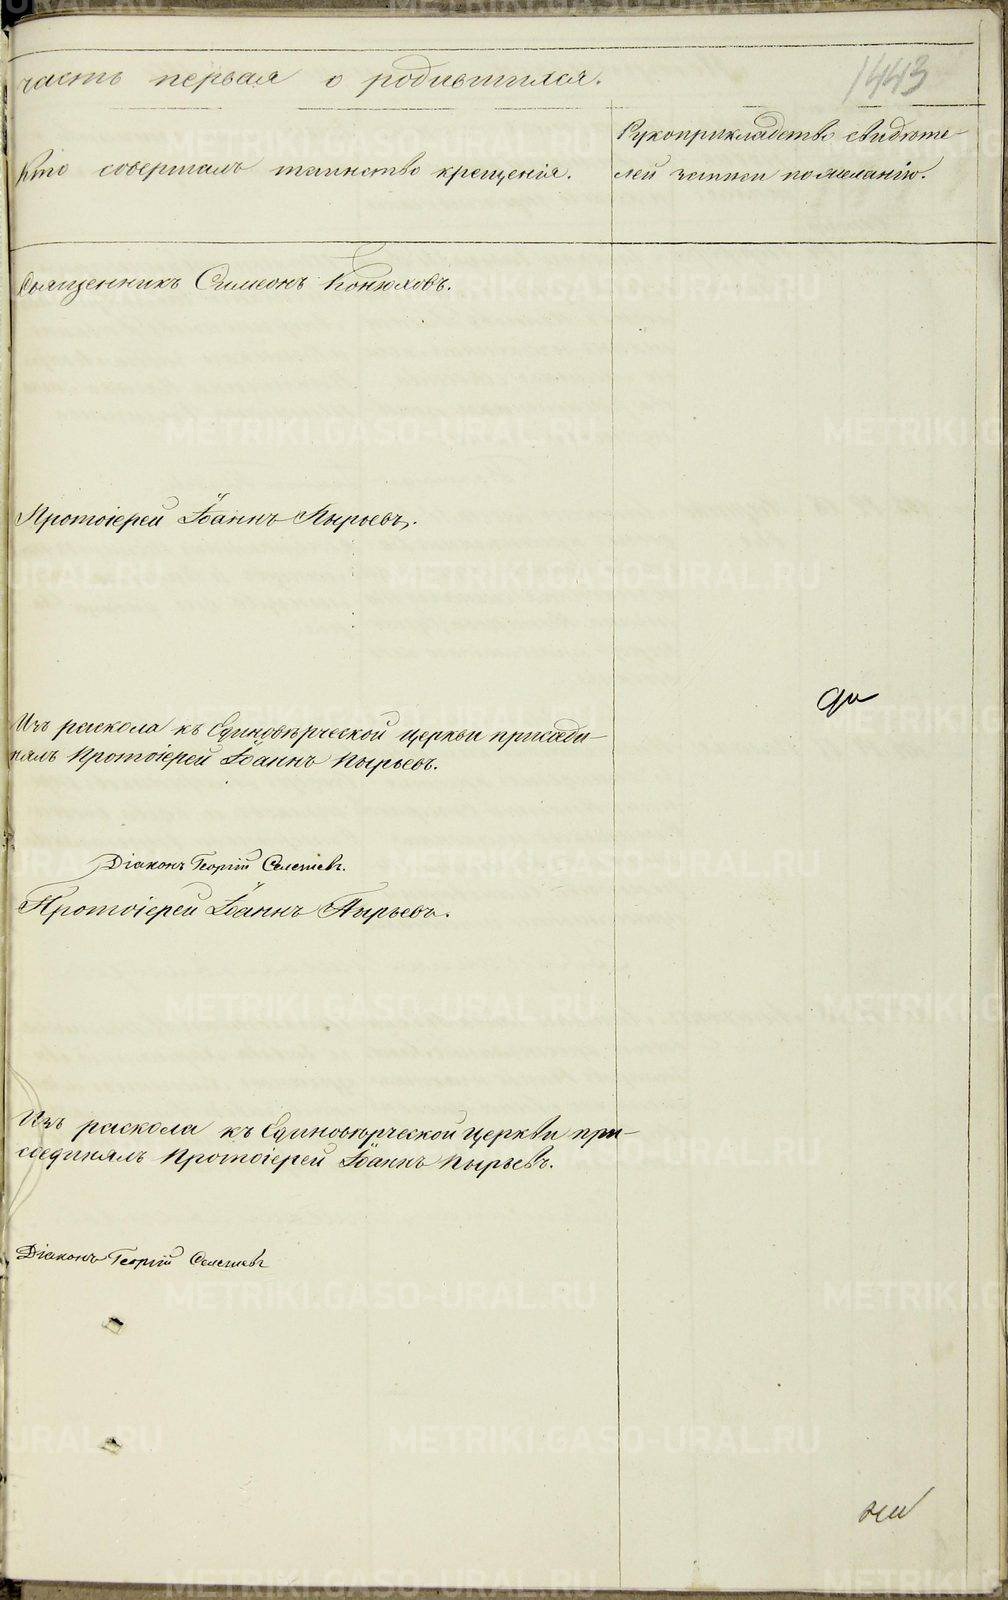 часть первая о родившихся.
1443
Кто совершалъ таинство крещенія.
Рукоприкладство свидѣте-
лей записи по желанію.
Священникъ Симеонъ Конюховъ.
Протоіерей Іоаннъ Пырьевъ.
Изъ раскола къ Единовѣрческой церкви присоеди-
нялъ Протоіерей Іоаннъ Пырьевъ.
Діаконъ Георгій
Протоіерей Іоаннъ Пырьевъ.
Изъ раскола къ Единовѣрческой церкви при-
соединялъ Протоіерей Іоаннъ Пырьевъ.
Діаконъ Георгій
METRIKI.GASO-URAL.RU